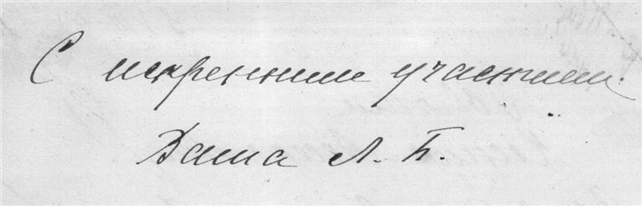 С искренним участием
Ваша Л. Б.